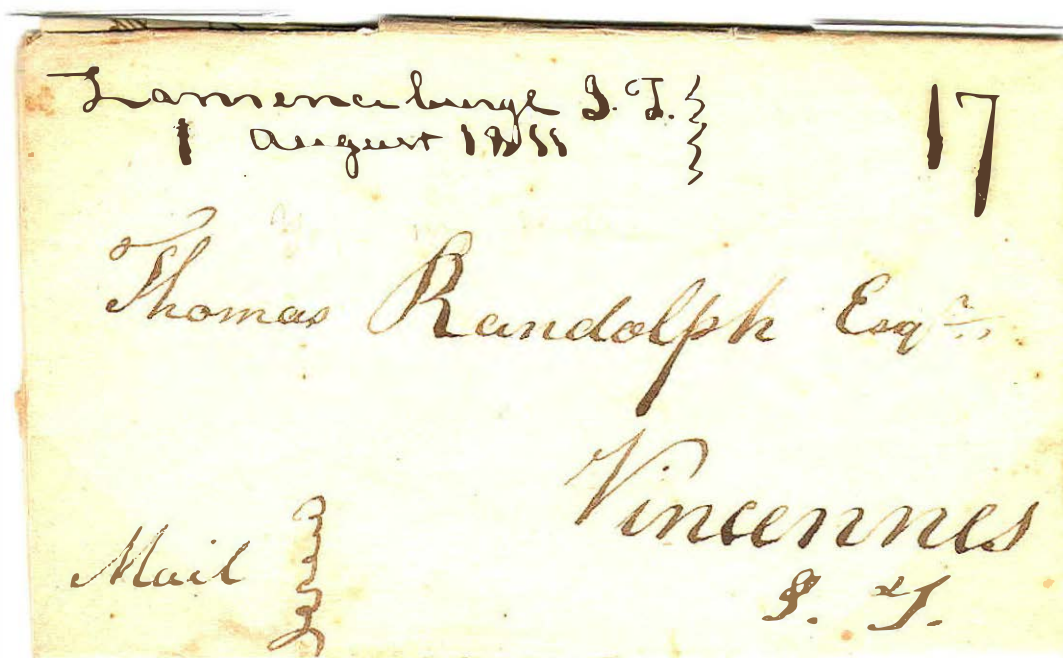 Lawrenceburgh I. T.
1 August 1811
17
Thomas Randolph Esqr
Vincennes
I. T.
Mail